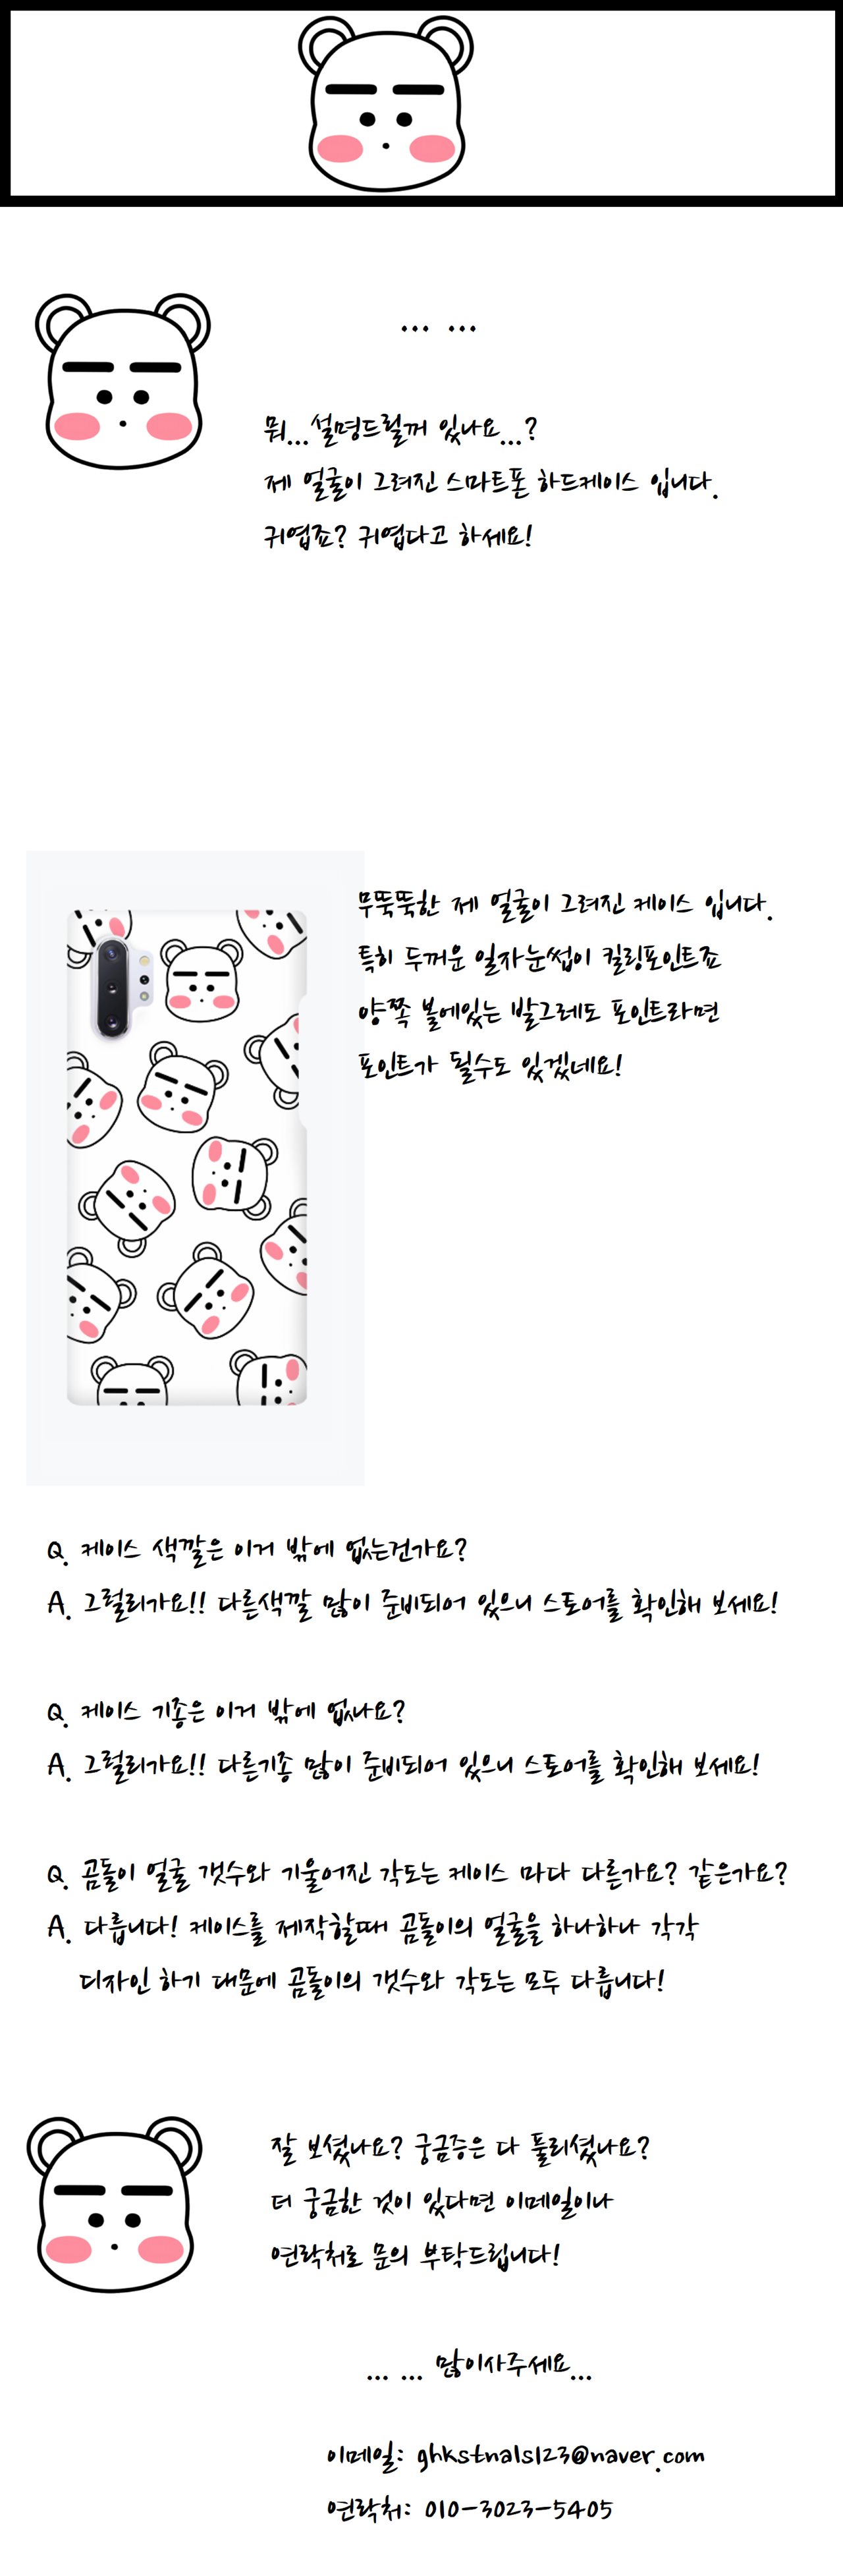 ... ...
뭐...설명드릴꺼 있나요...?
제 얼굴이 그려진 스마트폰 하드케이스 입니다.
귀엽죠? 귀엽다고 하세요!
무뚝뚝한 제 얼굴이 그려진 케이스 입니다.
특히 두꺼운 일자눈썹이 킬링포인트죠
양쪽 볼에있는 발그레도 포인트라면
포인트가 될수도 있겠네요!
Q. 케이스 색깔은 이거 밖에 없는건가요?
A. 그럴리가요!! 다른색깔 많이 준비되어 있으니 스토어를 확인해 보세요!
Q. 케이스 기종은 이거 밖에 없나요?
A. 그럴리가요!! 다른기종 많이 준비되어 있으니 스토어를 확인해 보세요!
Q. 곰돌이 얼굴 갯수와 기울어진 각도는 케이스 마다 다른가요? 같은가요?
A. 다릅니다! 케이스를 제작할때 곰돌이의 얼굴을 하나하나 각각
디자인 하기 때문에 곰돌이의 갯수와 각도는 모두 다릅니다!
잘 보셨나요? 궁금증은 다 풀리셨나요?
더 궁금한 것이 있다면 이메일이나
연락처로 문의 부탁드립니다!
... ... 많이사주세요...
이메일: ghkstnals123@naver.com
연락처: 010-3023-5405